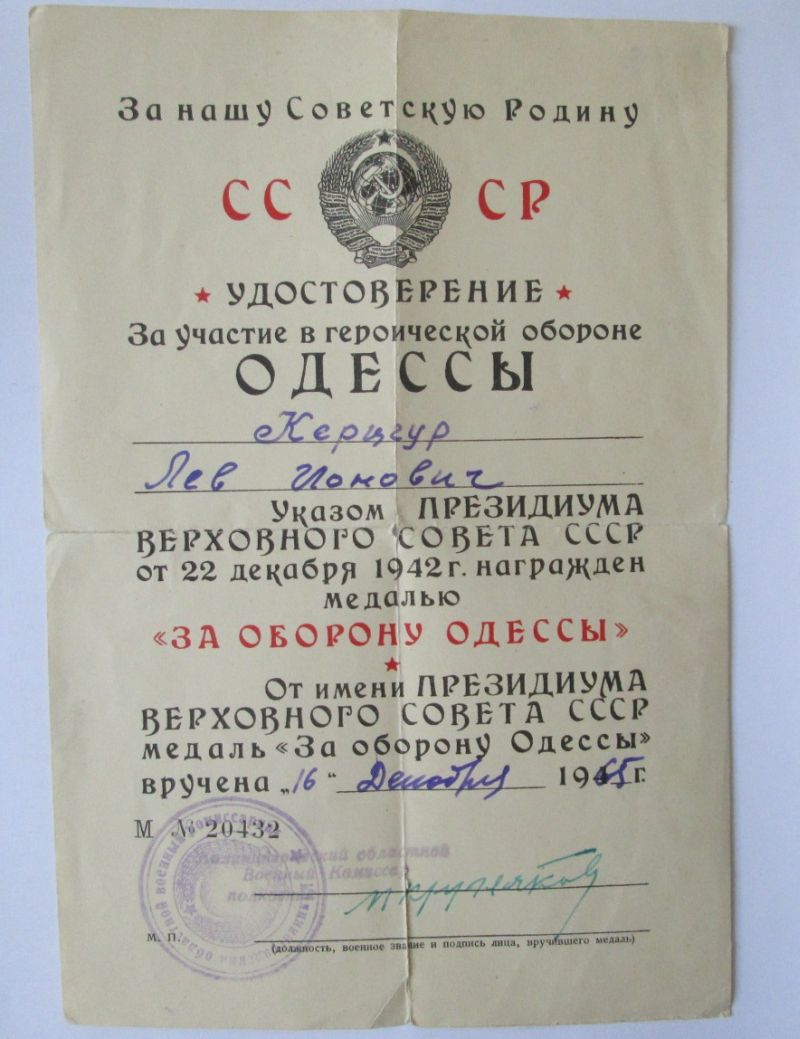 За нашу Советскую Родину
СССР
УДОСТОВЕРЕНИЕ
За участие в героической обороне
ОДЕССЫ
Керцгур
Лев Ионович
Указом ПРЕЗИДИУМА
ВЕРХОВНОГО СОВЕТА СССР
от 22 декабря 1942 г. награжден
медалью
«ЗА ОБОРОНУ ОДЕССЫ»
От имени ПРЕЗИДИУМА
ВЕРХОВНОГО СОВЕТА СССР
медаль «За оборону Одессы»
вручена „16“ Декабря 1965 г.
М № 20432
областной
Военный Комиссар
М. П.
(должность, военное звание и подпись лица, вручившего медаль)